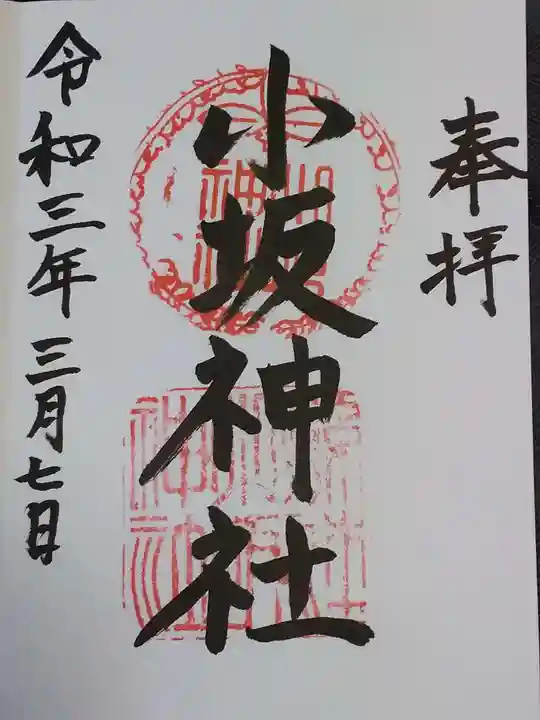 奉拝
小坂神社
令和三年三月七日